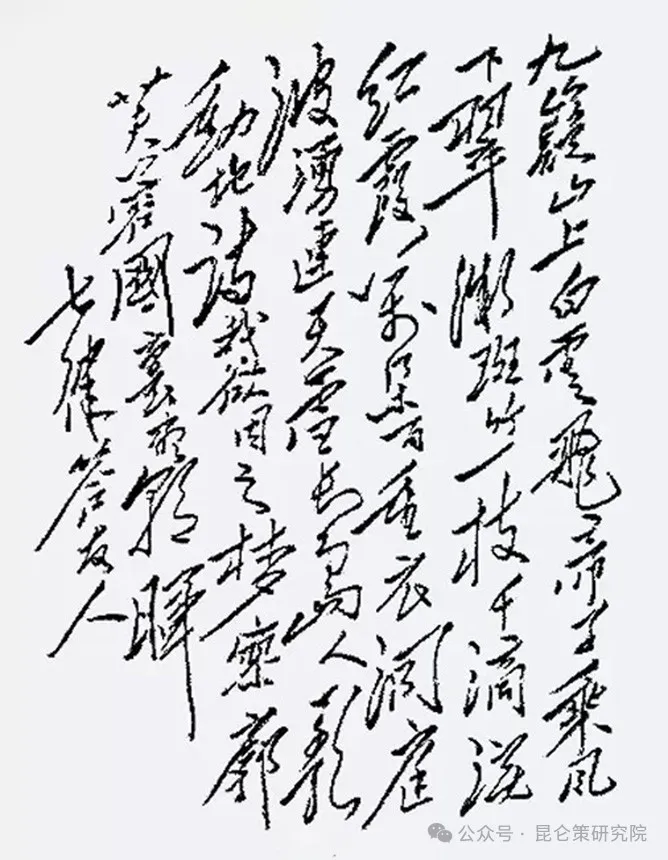 九嶷山上白雲飛帝子乘风
下翠微斑竹一枝千滴淚
紅霞万朵百重衣洞庭
波湧連天雪長島人歌
動地詩我欲因之梦寥廓
芙蓉國裏盡朝暉
七律 答友人
公众号·昆仑策研究院